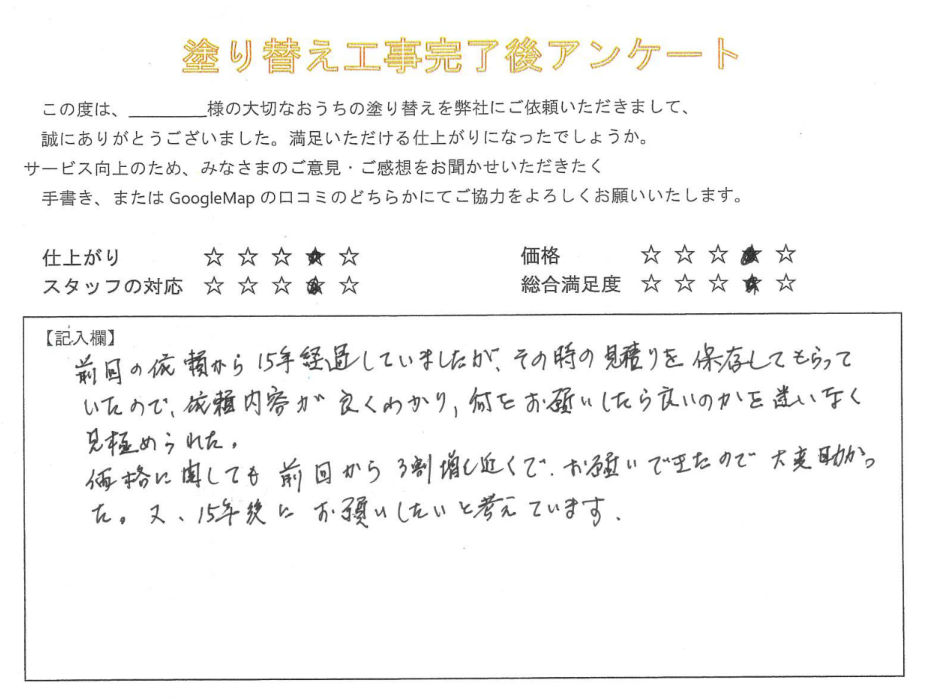 塗り替え工事完了後アンケート
この度は、________様の大切なおうちの塗り替えを弊社にご依頼いただきまして、
誠にありがとうございました。満足いただける仕上がりになったでしょうか。
サービス向上のため、みなさまのご意見・ご感想をお聞かせいただきたく
手書き、または GoogleMap の口コミのどちらかにてご協力をよろしくお願いいたします。
仕上がり ☆ ☆ ☆ ★ ☆ 価格 ☆ ☆ ☆ ★ ☆
スタッフの対応 ☆ ☆ ☆ ★ ☆ 総合満足度 ☆ ☆ ☆ ★ ☆
【記入欄】
前回の依頼から15年経過していましたが、その時の見積りを保存してもらって
いたので、依頼内容が良くわかり、何をお願いしたら良いのかを迷いなく
見極められた。
価格に関しても前回から3割増し近くで、お願いできたので大変助かっ
た。又、15年後にお願いしたいと考えています。